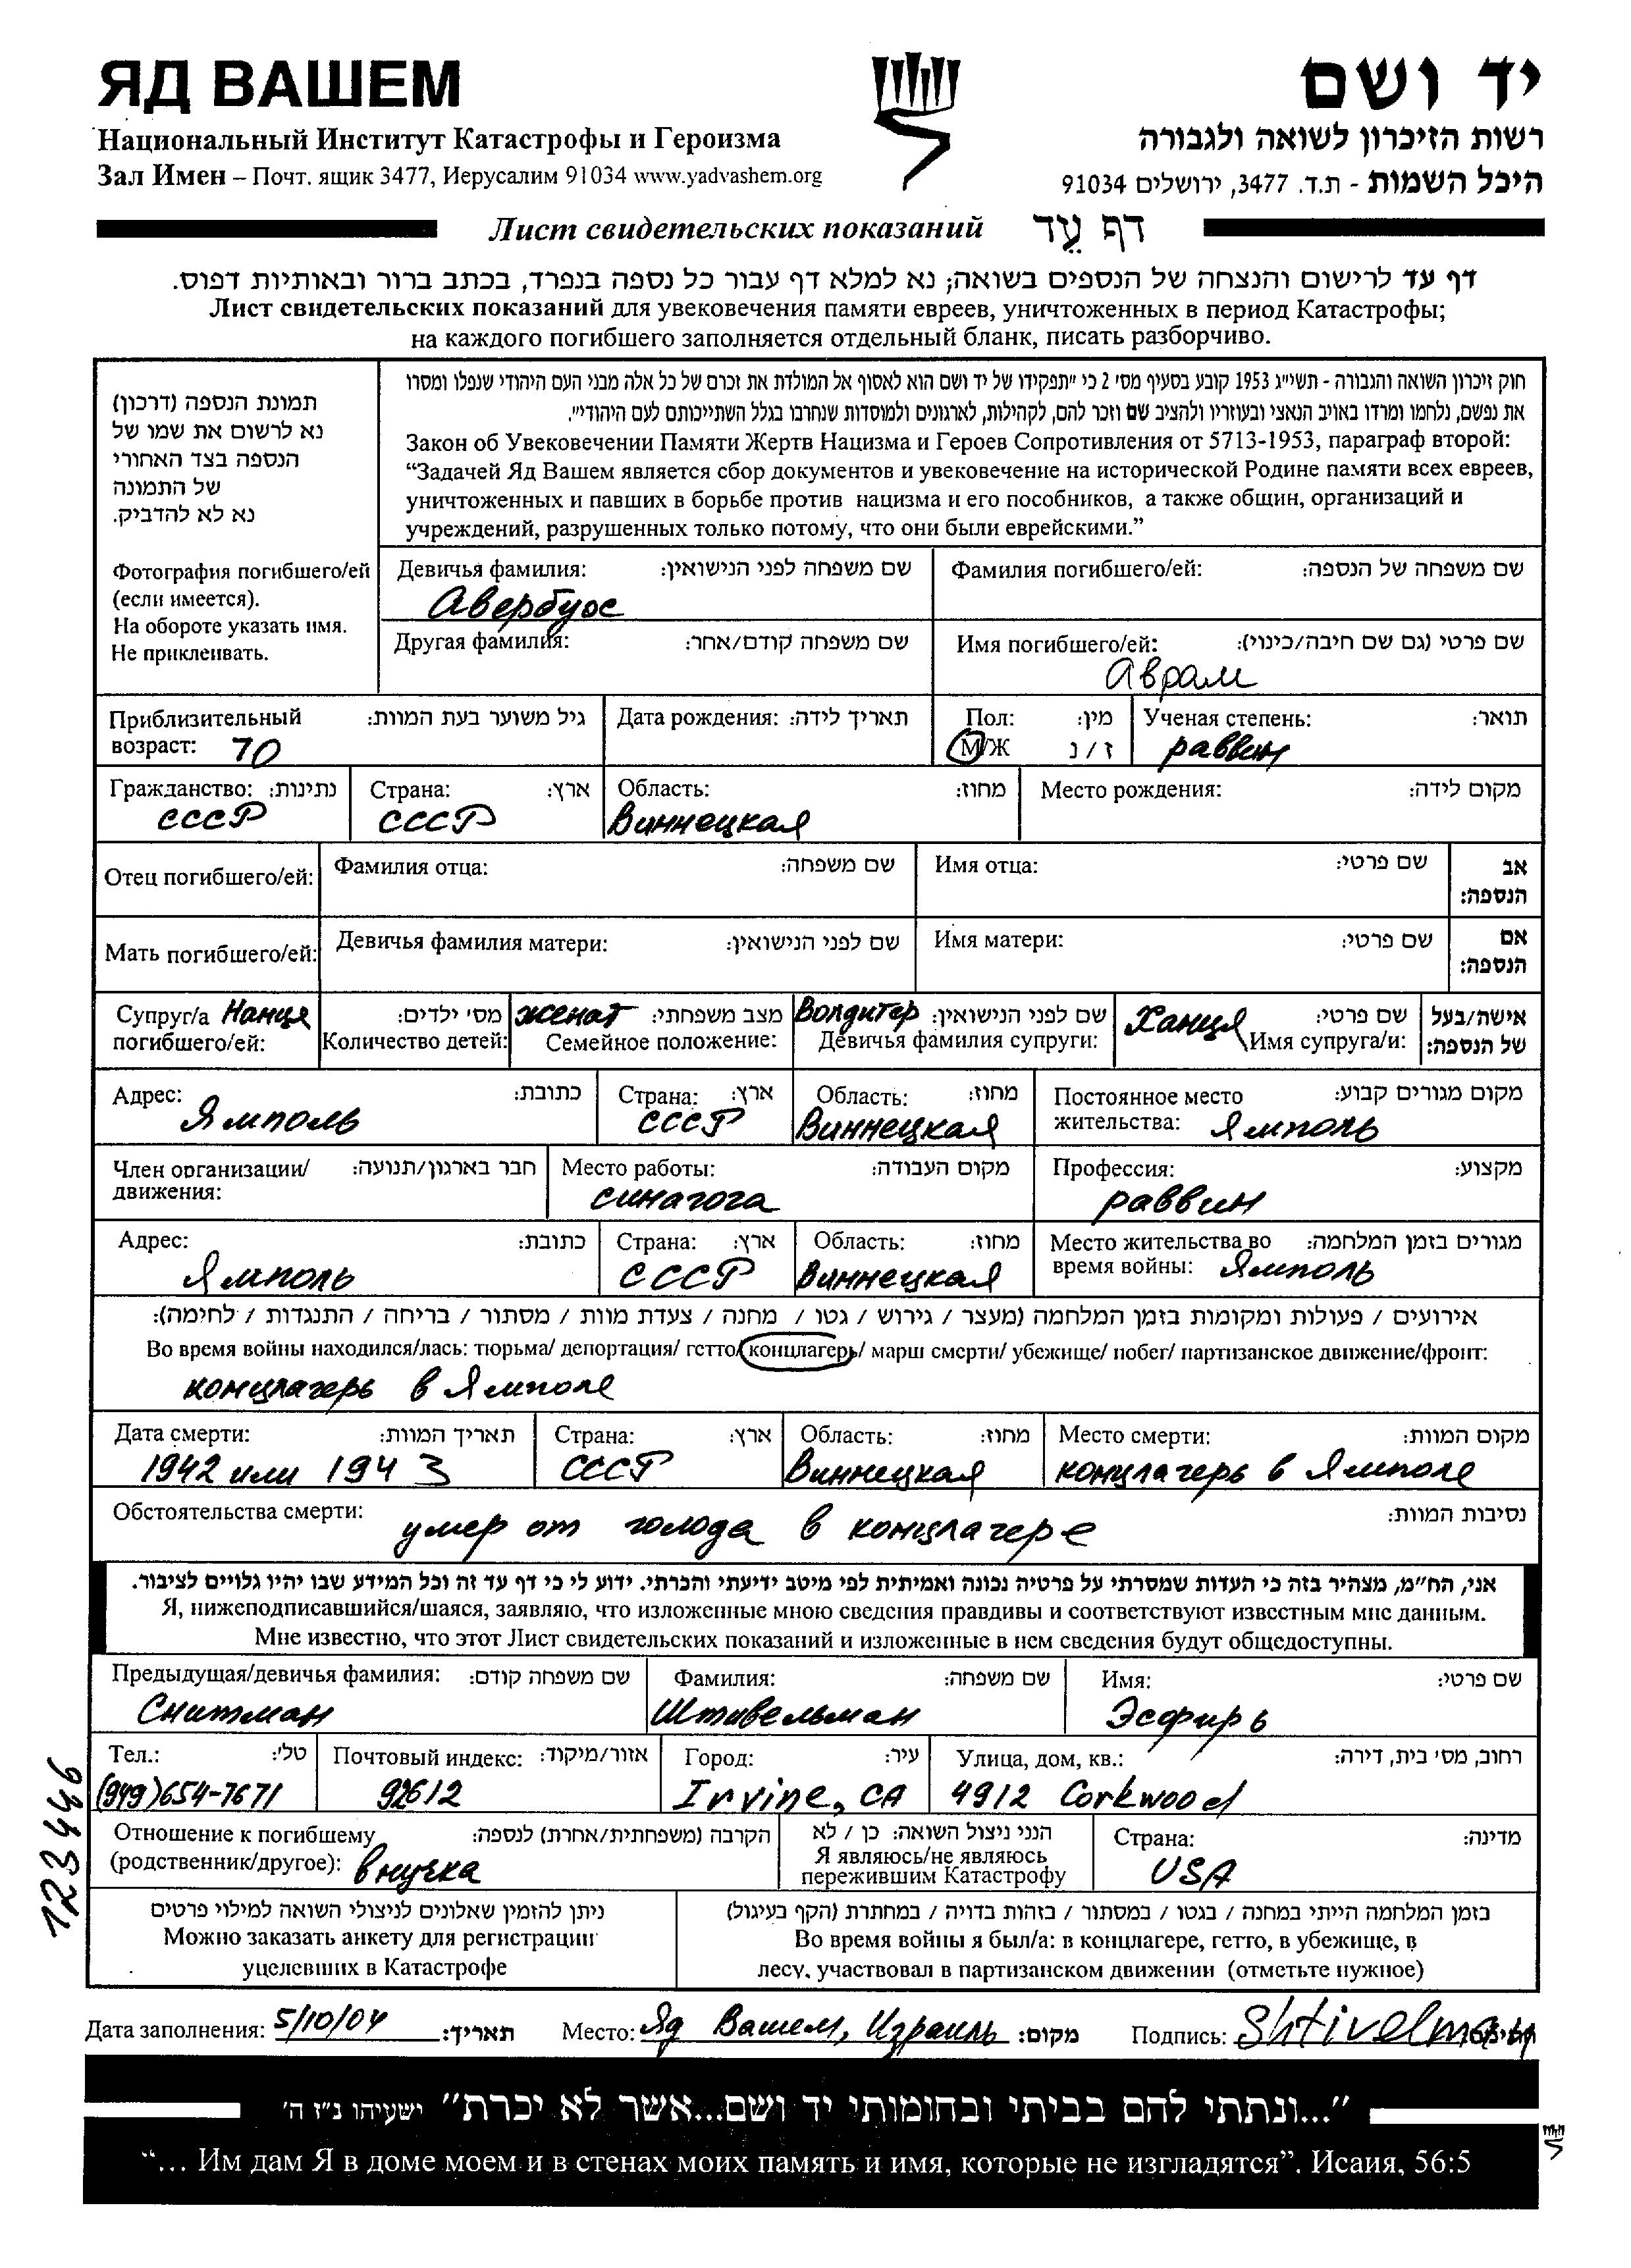 ЯД ВАШЕМ
יד ושם
Национальный Институт Катастрофы и Героизма
רשות הזיכרון לשואה ולגבורה
Зал Имен – Почт. ящик 3477, Иерусалим 91034 www.yadvashem.org
היכל השמות - ת.ד. 3477, ירושלים 91034
Лист свидетельских показаний דף עֵד
דף עד לרישום והנצחה של הנספים בשואה; נא למלא דף עבור כל נספה בנפרד, בכתב ברור ובאותיות דפוס.
Лист свидетельских показаний для увековечения памяти евреев, уничтоженных в период Катастрофы;
на каждого погибшего заполняется отдельный бланк, писать разборчиво.
תמונת הנספה (דרכון)
נא לרשום את שמו של
הנספה בצד האחורי
של התמונה
נא לא להדביק.
חוק זיכרון השואה והגבורה - תשי״ג 1953 קובע בסעיף מס׳ 2 כי ״תפקידו של יד ושם הוא לאסוף אל המולדת את זכרם של כל אלה מבני העם היהודי שנפלו ומסרו
את נפשם, נלחמו ומרדו באויב הנאצי ובעוזריו ולהציב שם וזכר להם, לקהילות, לארגונים ולמוסדות שנחרבו בגלל השתייכותם לעם היהודי״.
Закон об Увековечении Памяти Жертв Нацизма и Героев Сопротивления от 5713-1953, параграф второй:
“Задачей Яд Вашем является сбор документов и увековечение на исторической Родине памяти всех евреев,
уничтоженных и павших в борьбе против нацизма и его пособников, а также общин, организаций и
учреждений, разрушенных только потому, что они были еврейскими.”
Фотография погибшего/ей
(если имеется).
На обороте указать имя.
Не приклеивать.
Девичья фамилия: שם משפחה לפני הנישואין:
Авербуос
Фамилия погибшего/ей: שם משפחה של הנספה:
Другая фамилия: שם משפחה קודם/אחר:
Имя погибшего/ей: שם פרטי (גם שם חיבה/כינוי):
Аврам
Приблизительный גיל משוער בעת המוות:
возраст: 70
Дата рождения: תאריך לידה:
Пол: מין:
М/Ж ז / נ
Ученая степень: תואר:
раввин
Гражданство: נתינות:
СССР
Страна: ארץ:
СССР
Область: מחוז:
Виннецкая
Место рождения: מקום לידה:
Отец погибшего/ей:
Фамилия отца: שם משפחה:
Имя отца: שם פרטי:
אב
הנספה:
Мать погибшего/ей:
Девичья фамилия матери: שם לפני הנישואין:
Имя матери: שם פרטי:
אם
הנספה:
Супруг/а Нанця
погибшего/ей:
מס׳ ילדים:
Количество детей:
женат מצב משפחתי:
Семейное положение:
Волдитер שם לפני הנישואין:
Девичья фамилия супруги:
Ханця שם פרטי:
Имя супруга/и:
אישה/בעל
של הנספה:
Адрес: כתובת:
Ямполь
Страна: ארץ:
СССР
Область: מחוז:
Виннецкая
Постоянное место מקום מגורים קבוע:
жительства: Ямполь
Член организации/ חבר בארגון/תנועה:
движения:
Место работы: מקום העבודה:
синагога
Профессия: מקצוע:
раввин
Адрес: כתובת:
Ямполь
Страна: ארץ:
СССР
Область: מחוז:
Виннецкая
Место жительства во מגורים בזמן המלחמה:
время войны: Ямполь
אירועים / פעולות ומקומות בזמן המלחמה (מעצר / גירוש / גטו / מחנה / צעדת מוות / מסתור / בריחה / התנגדות / לחימה):
Во время войны находился/лась: тюрьма/ депортация/ гетто/ концлагерь/ марш смерти/ убежище/ побег/ партизанское движение/фронт:
концлагерь в Ямполе
Дата смерти: תאריך המוות:
1942 или 1943
Страна: ארץ:
СССР
Область: מחוז:
Виннецкая
Место смерти: מקום המוות:
концлагерь в Ямполе
Обстоятельства смерти: נסיבות המוות:
умер от голода в концлагере
אני, הח״מ, מצהיר בזה כי העדות שמסרתי על פרטיה נכונה ואמיתית לפי מיטב ידיעתי והכרתי. ידוע לי כי דף עד זה וכל המידע שבו יהיו גלויים לציבור.
Я, нижеподписавшийся/шаяся, заявляю, что изложенные мною сведения правдивы и соответствуют известным мне данным.
Мне известно, что этот Лист свидетельских показаний и изложенные в нем сведения будут общедоступны.
Предыдущая/девичья фамилия: שם משפחה קודם:
Снитман
Фамилия: שם משפחה:
Штивельман
Имя: שם פרטי:
Эсфирь
Тел.: טל׳:
(949)654-7671
Почтовый индекс: אזור/מיקוד:
92612
Город: עיר:
Irvine, CA
Улица, дом, кв.: רחוב, מס׳ בית, דירה:
4912 Corkwood
Отношение к погибшему הקרבה (משפחתית/אחרת) לנספה:
(родственник/другое): внучка
הנני ניצול השואה: כן / לא
Я являюсь/не являюсь
пережившим Катастрофу
Страна: מדינה:
USA
ניתן להזמין שאלונים לניצולי השואה למילוי פרטים
Можно заказать анкету для регистрации
уцелевших в Катастрофе
בזמן המלחמה הייתי במחנה / בגטו / במסתור / בזהות בדויה / במחתרת (הקף בעיגול)
Во время войны я был/а: в концлагере, гетто, в убежище, в
лесу, участвовал в партизанском движении (отметьте нужное)
123446
Дата заполнения: 5/10/04 תאריך: Место: Яд Вашем, Израиль מקום: Подпись: Shtivelman
״...ונתתי להם בביתי ובחומותי יד ושם...אשר לא יכרת״ ישעיהו נ״ז ה׳
“... Им дам Я в доме моем и в стенах моих память и имя, которые не изгладятся”. Исаия, 56:5